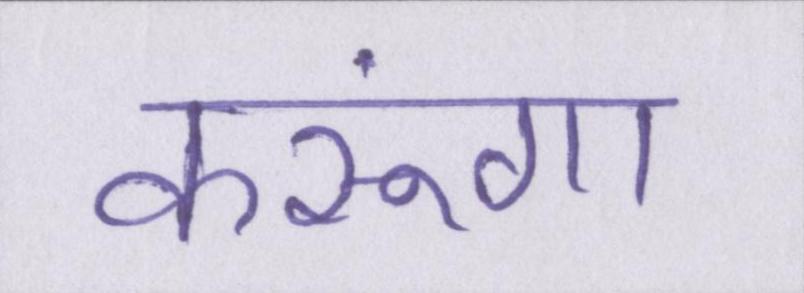 करूंगा